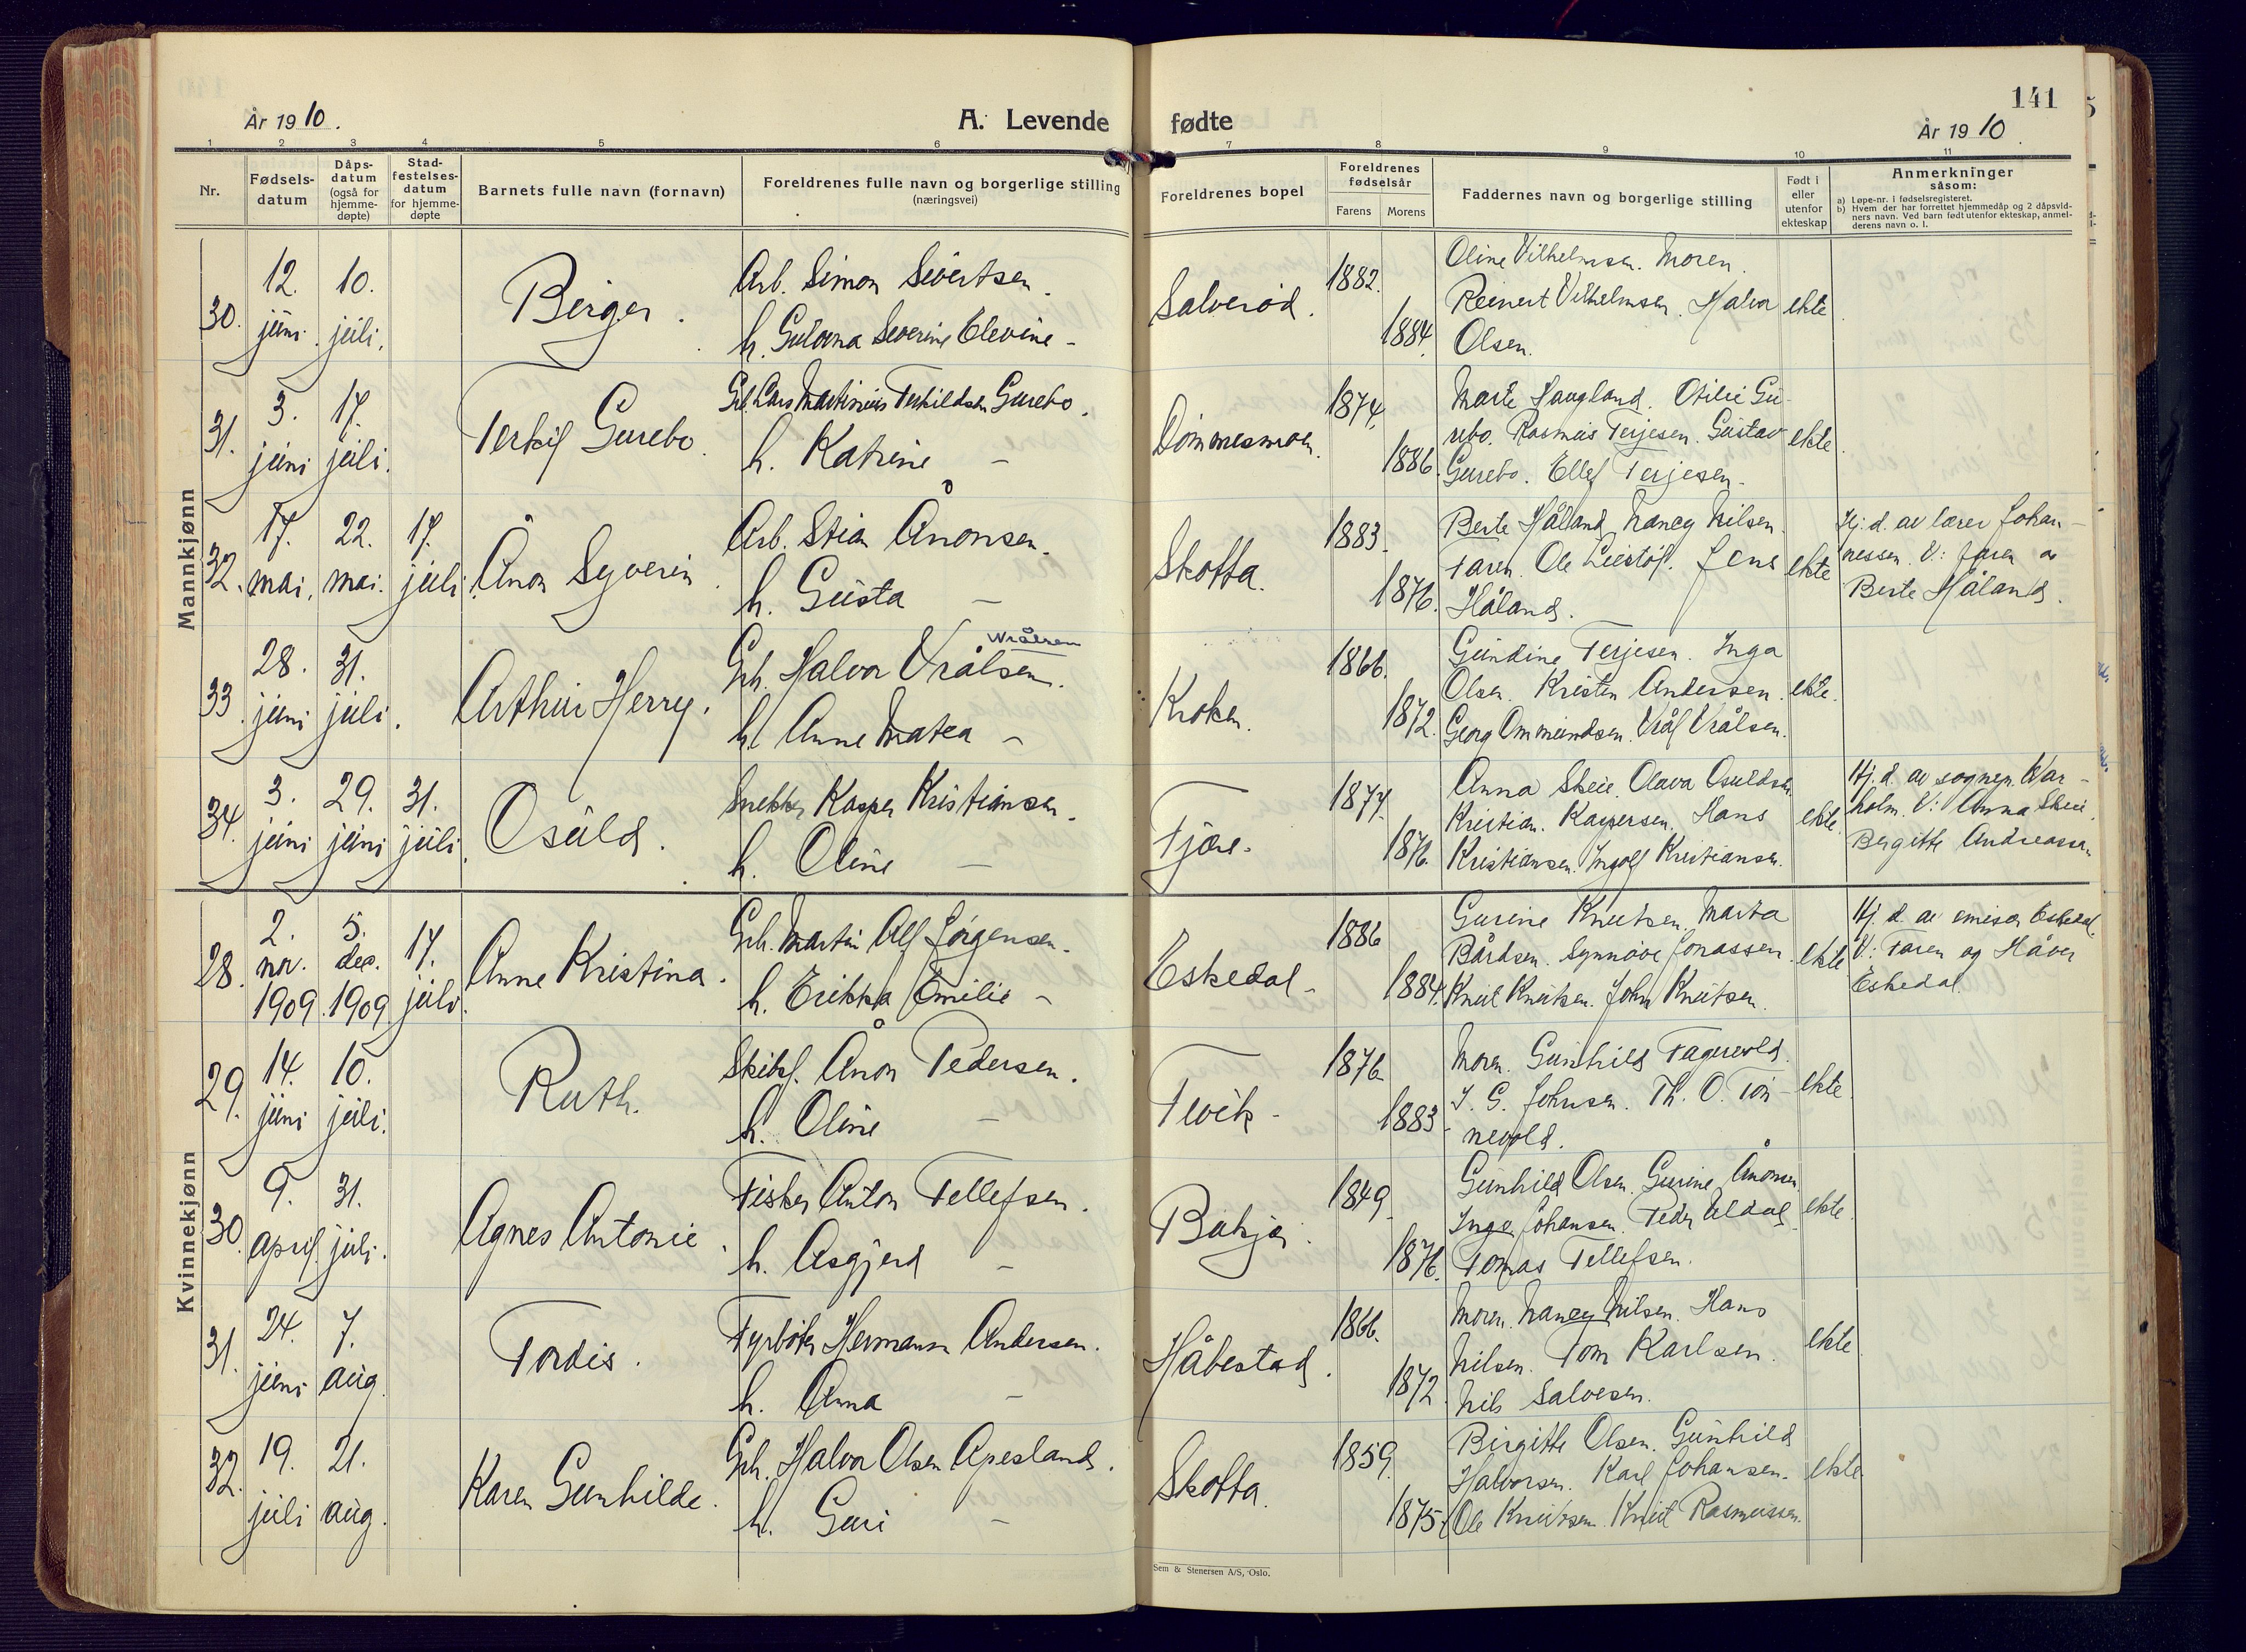 År 1910.
A. Levende fødte
141
År 1910
1 2 3 4 5 6 7 8 9 10 11
Nr.
Fødsels-
datum
Dåps-
datum
(også for
hjemme-
døpte)
Stad-
festelses-
datum
for hjemme-
døpte
Barnets fulle navn (fornavn)
Foreldrenes fulle navn og borgerlige stilling
(næringsvei)
Foreldrenes bopel
Foreldrenes
fødselsår
Farens Morens
Faddernes navn og borgerlige stilling
Født i
eller
utenfor
ekteskap
Anmerkninger
såsom:
a) Løpe-nr. i fødselsregisteret.
b) Hvem der har forrettet hjemmedåp og 2 dåpsvid-
ners navn. Ved barn født utenfor ekteskap, anmel-
derens navn o. l.
Mannkjønn
30. 12. juni. 10. juli. Birger.
Arb. Simon Sivertsen.
h. Gulovna Severine Elevine -
Salverød. 1882. 1884.
Oline Vilhelmsen. Moren.
Reinert Vilhelmsen. Halvor
Olsen.
ekte
31. 3. juni 17. juli. Terkil Gurebo.
Gb. Lars Martinius Terkildsen Gurebo.
h. Katrine -
Dømmesmoen. 1874. 1886.
Marte Haugland. Otilie Gu-
rebo. Rasmus Terjesen. Gustav
Gurebo. Ellef Terjesen.
ekte
32. 17. mai. 22. mai. 17. juli. Ånon Syverin.
Arb. Stian Ånonsen.
h. Gusta -
Skofta. 1883. 1876.
Berte Håland. Nancy Nilsen.
Faren. Ole Liestøl. Jens
Håland.
ekte
Hj. d. av lærer Johan-
nessen. V: faren og
Berte Håland.
33. 28. juni 31. juli. Arthur Herry.
Wrålsen
Gb. Halvor Vrålsen.
h. Anne Matea -
Kroken. 1866. 1872.
Gundine Terjesen. Inga
Olsen. Kristen Andersen.
Georg Ommundsen. Vrål Vrålsen.
ekte.
34. 3. juni 29. juni 31. juli. Osuld.
Snekker Kasper Kristiansen.
h. Oline -
Fjære. 1874. 1876.
Anna Skeie. Olava Osuldsen
Kristian. Kaspersen. Hans
Kristiansen. Ingolf Kristiansen.
ekte.
Hj. d. av sognepr. War-
holm. V: Anna Skeie.
Birgitte Andreassen
Kvinnekjønn
28. 2. nov. 1909. 5. dec. 1909 17. juli. Anne Kristina.
Gb. Martin Alf Jørgensen.
h. Erikka Emilie -
Eskedal - 1886 1884.
Gurine Knutsen. Marta
Bårdsen. Synnøve Jonassen.
Knut Knutsen. John Knutsen.
ekte
Hj. d. av emisær Eskedal.
V: Faren og Håver
Eskedal.
29. 14. juni 10. juli. Ruth.
Skibsf. Ånon Pedersen.
h. Oline -
Fevik - 1876. 1883.
Moren. Gunhild Fagervold.
J. G. Johnsen. Th. O. Tøn-
nevold.
ekte.
30. 9. April. 31. juli. Agnes Antonie.
Fisker Anton Tellefsen.
h. Asgjerd -
1849. 1876.
Gunhild Olsen. Gurine Ånonsen.
Inga Johansen. Peder Uldal.
Tomas Tellefsen.
ekte.
31. 24. juni 7. aug. Tordis.
Fyrbøter Hermann Andersen.
h. Anna -
Håbestad. 1866. 1872.
Moren. Nancy Nilsen. Hans
Nilsen. Tom Karlsen.
Nils Salvesen.
ekte.
32. 19. juli 21. aug. Karen Gunhilde.
Gb. Halvor Olsen Apesland.
h. Guri -
Skofta. 1859. 1875.
Birgitte Olsen. Gunhild
Halvorsen. Karl Johansen.
Ole Knutsen. Knut Rasmussen.
ekte.
Sem & Stenersen A/S, Oslo.